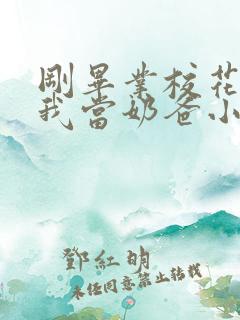 剛畢業校花
我當奶爸小
鄧紅明
未经同意禁止转载